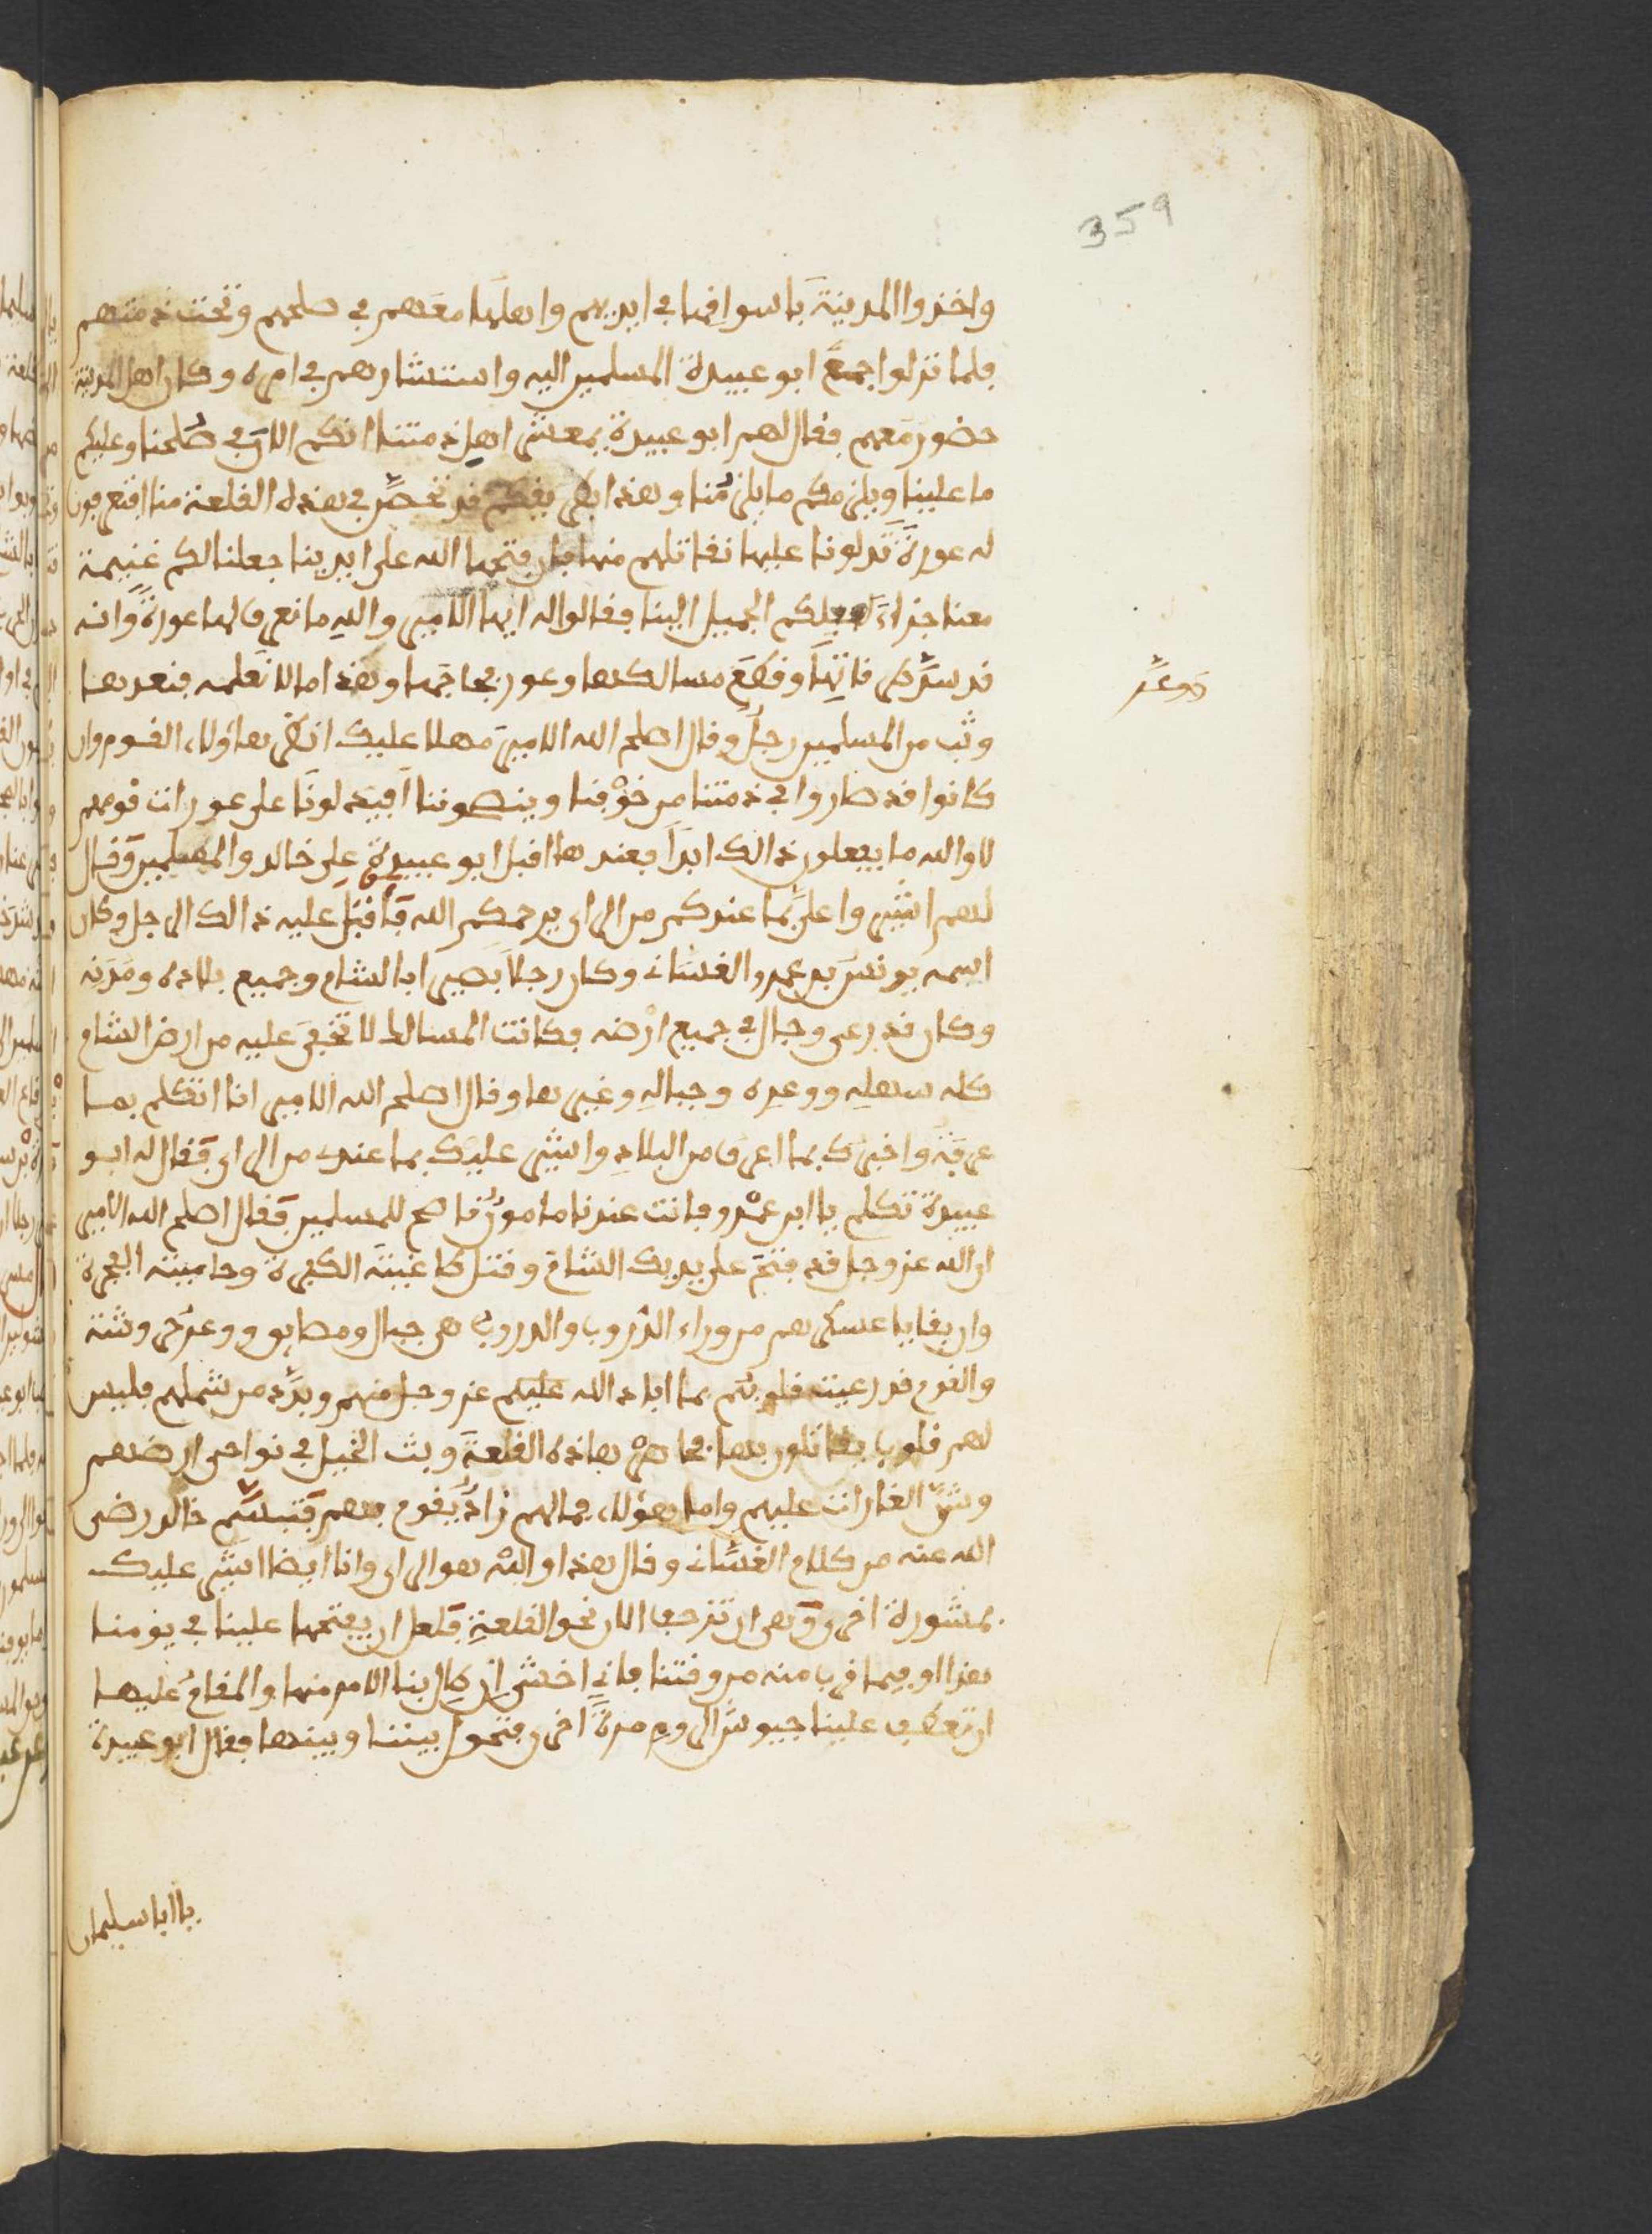 359
واخذوا المدينة باسواقها في ايديهم واهلها معهم في صلحهم وتحت ذمتهم
فلما نزلوا جمع ابو عبيدة المسلمين اليه واستشارهم في امره وكان اهل المدينة
حضور معهم فقال لهم ابو عبيدة يمعشر اهل ذمتنا انكم الان في صلحنا وعليكم
ما علينا ويلزمكم ما يلزمنا وهذا قد تحصن في هذه القلعة منا افتعرفون
له عورة تدلونا عليها نقاتلهم منها فان فتحها الله على ايدينا جعلنا لكم غنيمة
معنا جزاء لفعلكم الجميل الينا فقالوا له ايها الامير والله ما نعرف لها عورة وانه
قد سد طرقاتها وقطع مسالكها وعور فجاجها وهذا ما لا نعلمه فعندها
ووعر
وثب من المسلمين رجل وقال اصلح الله الامير مهلا عليك انظر هاؤلاء القوم وان
كانوا قد صاروا في ذمتنا من خوفنا وينصوننا افيدلونا على عورات قومهم
لا والله ما يفعلون ذالك ابدا فعندها اقبل ابو عبيدة على خالد والمسلمين وقال
لهم اشيروا علي بما عندكم من الراي يرحمكم الله فاقبل عليه ذالك الرجل وكان
اسمه يونس بن عمرو الغساني وكان رجلا بصيرا بالشام وجميع بلاده ومدنه
وكان قد رعى وجال في جميع ارضه فكانت المسالك لا تخفى عليه من ارض الشام
كله سهله ووعره وجباله وغيرها وقال اصلح الله الامير انا اتكلم بما
عرفته واخبرك بما اعرف من البلاد واشير عليك بما عندي من الراي فقال له ابو
عبيدة تكلم يا ابن عمرو فانت عندنا مامون ناصح للمسلمين فقال اصلح الله الامير
ان الله عز وجل قد فتح على يديك الشام وقتل طاغية الكفرة وحامية الفجرة
وان بقايا عسكرهم من وراء الدروب والدروب هي جبال ومضايق ووعر خشنة
والقوم قد رعبت قلوبهم بما اباد الله عليهم عز وجل منهم وبدد من شملهم فليس
لهم قلوب يقاتلون بها فحاصر هاذه القلعة وبث الخيل في نواحي ارضهم
وشن الغارات عليهم واما هؤلاء فما لهم زاد يقوم بهم فتبسم خالد رضي
الله عنه من كلام الغساني وقال هذا والله هو الراي وانا ايضا اشير عليك
بمشورة اخرى وهي ان تزحف الان نحو القلعة فلعل ان يفتحها علينا في يومنا
هذا او فيما قرب منه من وقتنا فاني اخشى ان طال بنا الامر منها والمقام عليها
ان تعطف علينا جيوش الروم مرة اخرى بيننا وبينها فقال ابو عبيدة
يا ابا سليمان